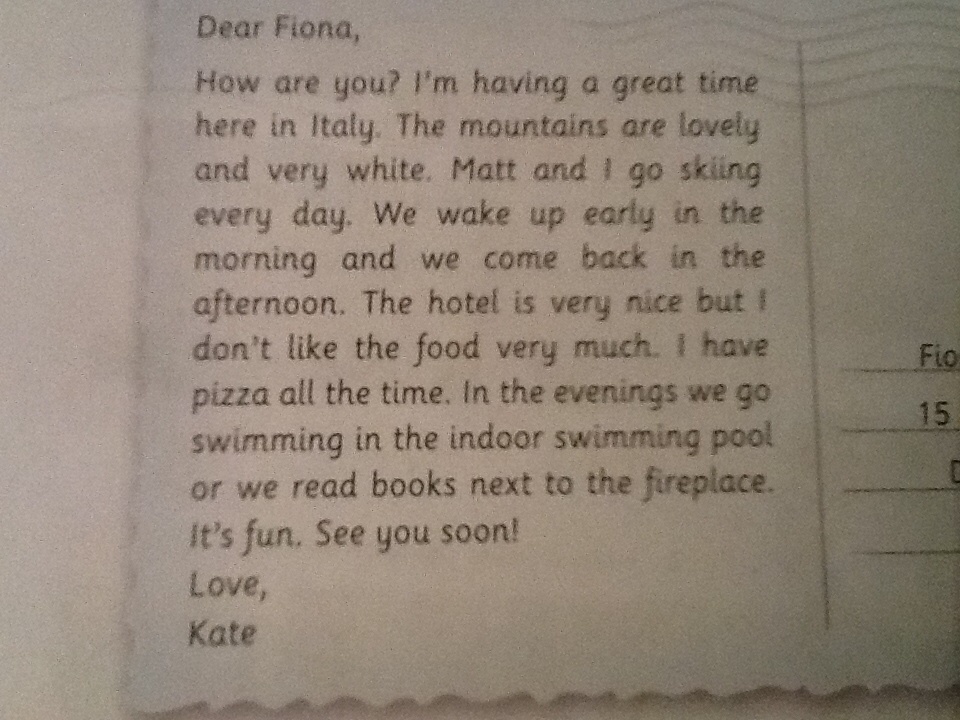 Dear Fiona,
How are you? I'm having a great time
here in Italy. The mountains are lovely
and very white. Matt and I go skiing
every day. We wake up early in the
morning and we come back in the
afternoon. The hotel is very nice but I
don't like the food very much. I have
pizza all the time. In the evenings we go
swimming in the indoor swimming pool
or we read books next to the fireplace.
It's fun. See you soon!
Love,
Kate
Fio
15